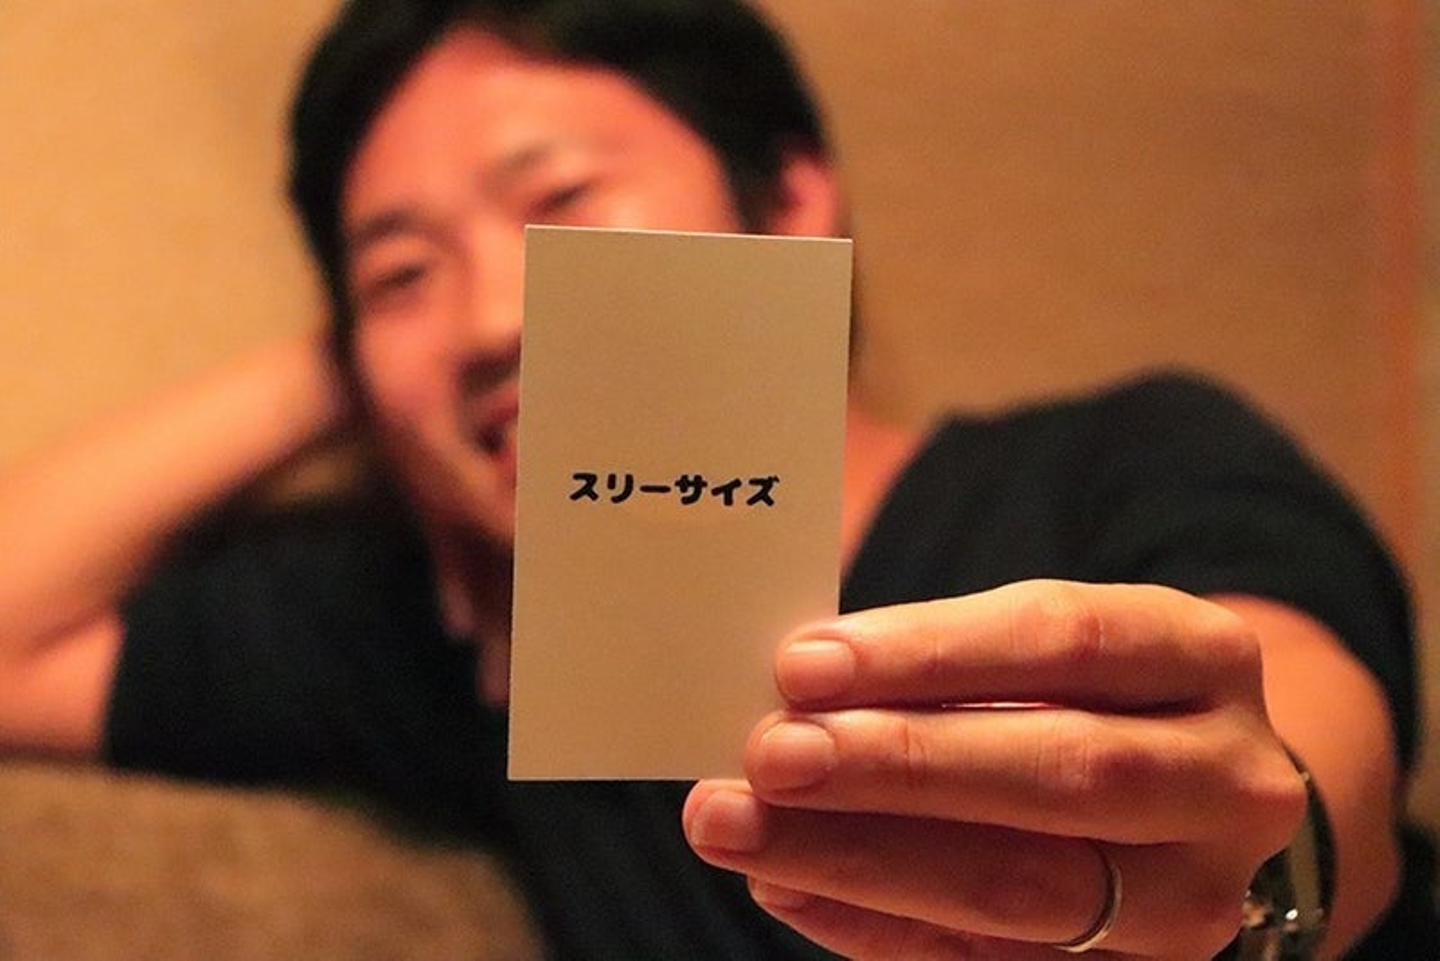 スリーサイズ